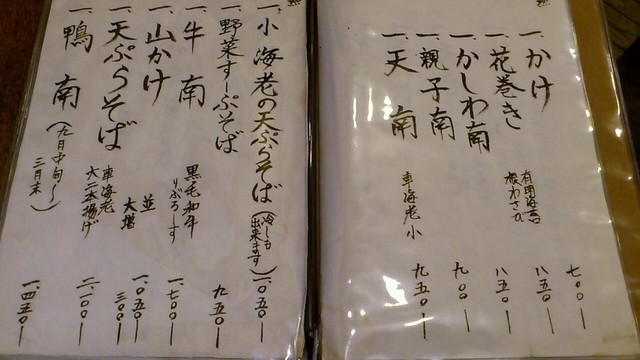 一、かけ 七〇〇ー
一、花巻き 有明海苔 根わさび 八五〇ー
一、かしわ南 八五〇ー
一、親子南 九〇〇ー
一、天南 車海老小 九五〇ー
一、小海老の天ぷらそば（冷しも出来ます）一、〇五〇ー
一、野菜すーぷそば 九五〇ー
一、牛南 黒毛和牛 りぶろーす 一、七〇〇ー
一、山かけ 並 一、〇五〇ー
大増 三〇〇ー
一、天ぷらそば 車海老 大二本揚げ 二、一〇〇ー
一、鴨南（九月中旬〜三月末）一、四五〇ー